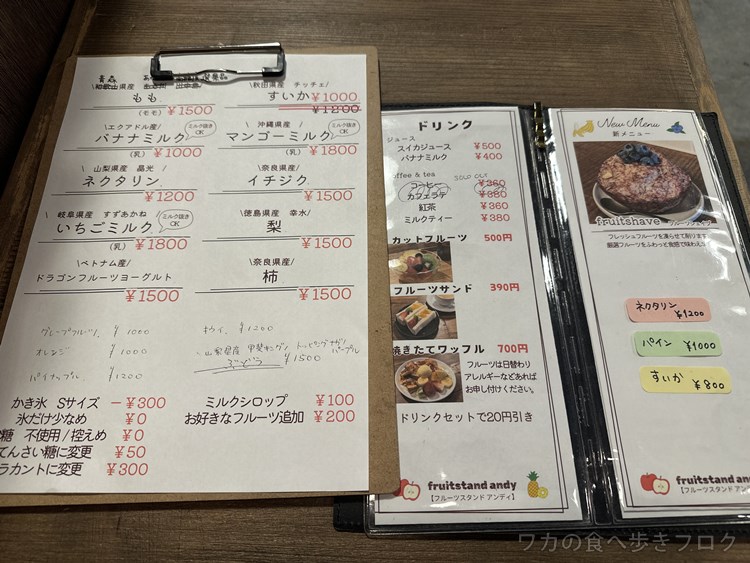 青森
和歌山県産
もも
(モモ) ¥1500
\秋田県産 チッチェ/
すいか ¥1000
¥1200
エクアドル産/
バナナミルク
ミルク抜き
OK
(乳) ¥1000
\沖縄県産/
マンゴーミルク
ミルク抜き
OK
(乳) ¥1800
\山梨県産 晶光/
ネクタリン
¥1200
\奈良県産/
イチジク
¥1500
\岐阜県産 すずあかね/
いちごミルク
ミルク抜き
OK
(乳) ¥1800
\徳島県産 幸水/
梨
¥1500
\ベトナム産/
ドラゴンフルーツヨーグルト
¥1500
\奈良県産/
柿
¥1500
グレープフルーツ ¥1000
オレンジ ¥1000
パイナップル ¥1200
キウイ ¥1200
山梨県産
ぶどう
¥1500
かき氷 Sサイズ ー¥300
氷だけ少なめ ¥0
糖 不使用/控えめ ¥0
てんさい糖に変更 ¥50
ラカントに変更 ¥300
ミルクシロップ ¥100
お好きなフルーツ追加 ¥200
ドリンク
ジュース
スイカジュース ¥500
バナナミルク ¥400
offee & tea
SOLD OUT
コーヒー ¥360
カフェラテ ¥380
紅茶 ¥360
ミルクティー ¥380
カットフルーツ 500円
フルーツサンド 390円
焼きたてワッフル 700円
フルーツは日替わり
アレルギーなどあれば
お申し付けください。
ドリンクセットで20円引き
fruitstand andy
【フルーツスタンド アンディ】
New Menu
新メニュー
fruitshave
フレッシュフルーツを凍らせて削ります
厳選フルーツをふわっと食感で味わえ
ネクタリン
¥1200
パイン ¥1000
すいか ¥800
fruitstand andy
【フルーツスタンド アンディ】
ワカの食べ歩きブログ